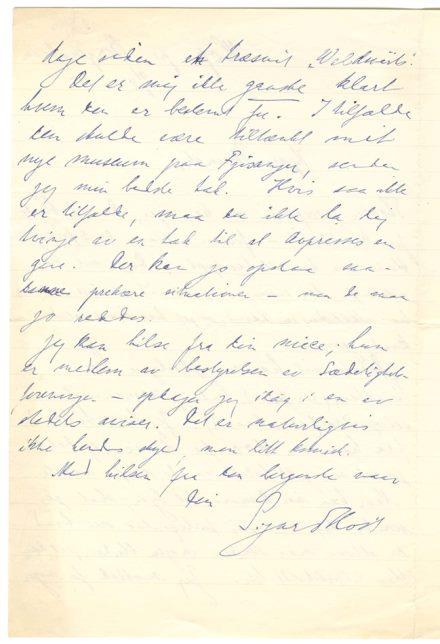 dage siden et træsnit "
Det er mig ikke ganske klart
hvem den er bestemt for. I tilfælde
den skulde være tiltænkt mit
nye museum paa , sender
jeg min bedste tak. Hvis saa ikke
er tilfælde, maa du ikke la dig
av en tak til at avpresses en
gave. Der kan jo opstaa saa-
prekære situationer – men de maa
jo reddes.
Jeg kan hilse fra din niece; hun
er medlem av bestyrelsen av Sædeligheds-
foreningen – opdager jeg idag i en av
stedets aviser. Det er naturligvis
ikke hendes skyld, men litt komisk.
Med hilsen fra den bergenske vaar
Din